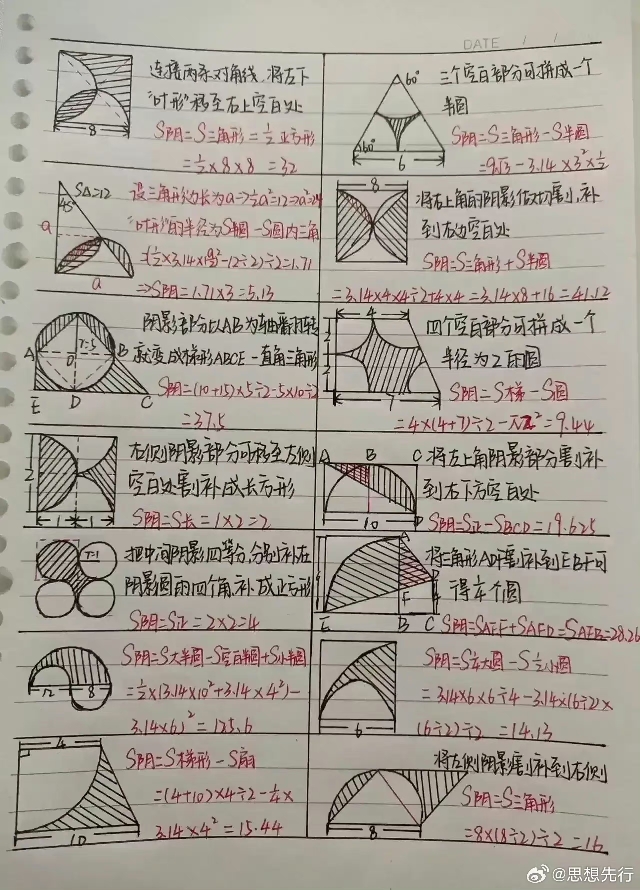 DATE / /
连接两条对角线,将左下
"叶形"移至右上空白处
S阴=S三角形=½正方形
=½×8×8=32
8
60°
60°
6
三个空白部分可拼成一个
半圆
S阴=S三角形-S半圆
=9√3-3.14×3²×½
45°
S△=12
a
a
设三角形边长为a→½a²=12→a²=24
=1.71
→S阴=1.71×3=5.13
8
将右上角的阴影依切割,补
到左边空白处
S阴=S三角形+S半圆
=3.14×4×4÷2+4×4=3.14×8+16=41.12
A
B
O
r=5
E
D
C
阴影部分以AB为轴翻转
就变成梯形ABCE-直角三角形
S阴=(10+15)×5÷2-5×10÷2
=37.5
4
2
2
7
四个空白部分可拼成一个
半径为2的圆
S阴=S梯-S圆
=4×(4+7)÷2-π2²=9.44
2
1
1
右侧阴影部分可移至左侧
空白处割补成长方形
S阴=S长=1×2=2
A
B
C
D
10
将左上角阴影部分割补
到右下方空白处
S阴=S正-SBCD=19.625
r=1
把中间阴影四等分,分别补在
阴影圆的四个角,补成正方形
S阴=S正=2×2=4
A
D
F
E
B
C
将三角形AD割补到EBF可
得¼个圆
S阴=SAEF+SAFD=SAEB=28.26
12
8
S阴=S大半圆-S空白半圆+S小半圆
=½×(3.14×10²+3.14×4²)-
3.14×6)²=125.6
6
S阴=S¼大圆-S½小圆
=3.14×6×6÷4-3.14×(6÷2)×
(6÷2)÷2=14.13
4
10
S阴=S梯形-S扇
=(4+10)×4÷2-¼×
3.14×4²=15.44
8
将左侧阴影割补到右侧
S阴=S三角形
=8×(8÷2)÷2=16
@思想先行